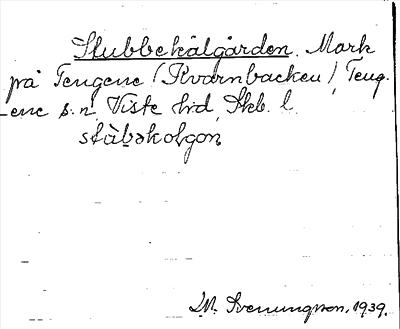 Stubbekålgården. Mark
på Tengene (Kvarnbacken), Teng-
ene s:n, Viste hd, Skb. l.
stùbəkolgon
Svenungsson, 1939.